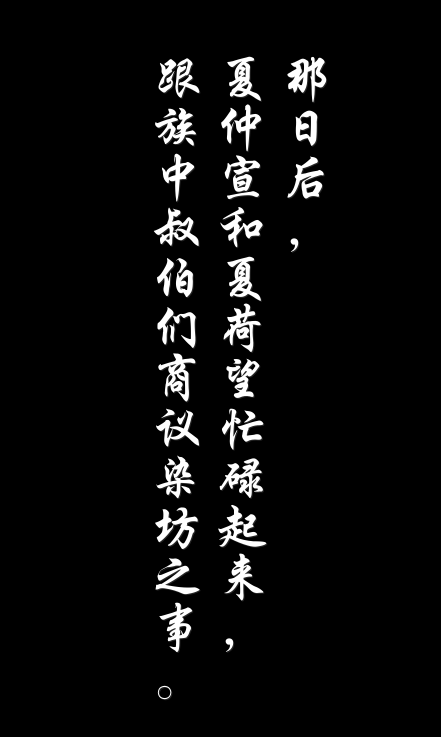 那日后，
夏仲宣和夏荷望忙碌起来，
跟族中叔伯们商议染坊之事。